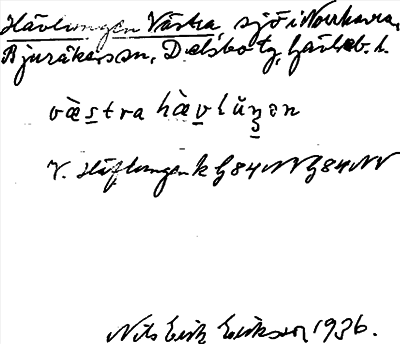 Hävlungen Västra, sjö i Norrhavra,
Bjuråker sn, Delsbo tg, Gävleb. l.
væ̀stra hæ̀vlŭŋən
V. Häflungen k G84NV G84NV
Nils Erik Erikson 1936.